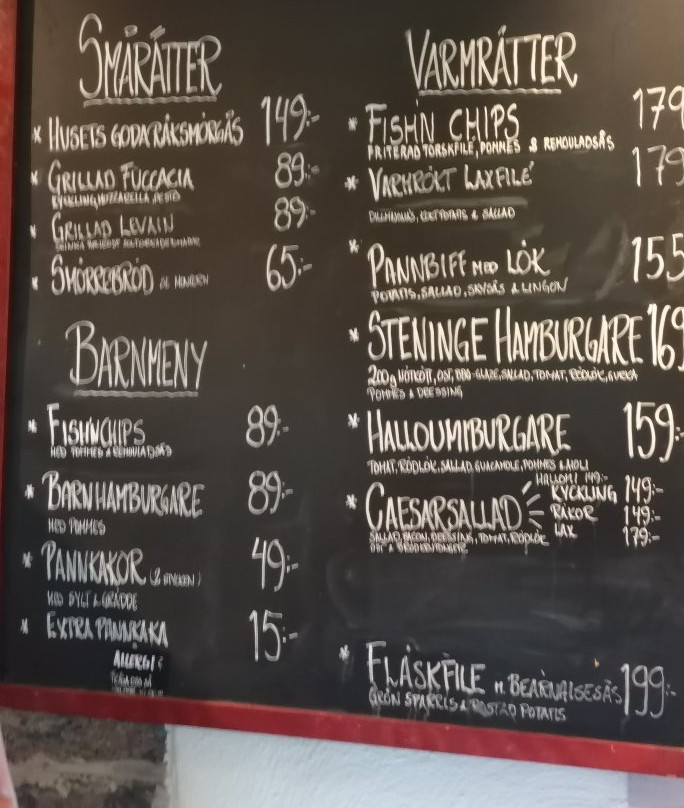 SMÅRÄTTER
* HUSETS GODA RÄKSMÖRGÅS 149:-
* GRILLAD FUCCACIA 89:-
KYCKLING, MOZZARELLA, PESTO
* GRILLAD LEVAIN 89:-
* SMÖRREBRÖD 65:-
BARNMENY
* FISHNCHIPS 89:-
MED POMMES & REMOULADSÅS
* BARNHAMBURGARE 89:-
MED POMMES
* PANNKAKOR (2 STYCKEN) 49:-
MED SYLT & GRÄDDE
* EXTRA PANNKAKA 15:-
ALLERGI?
VARMRÄTTER
* FISHN CHIPS 179
FRITERAD TORSKFILÉ, POMMES & REMOULADSÅS
* VARMRÖKT LAXFILÉ 179
POTATIS & SALLAD
* PANNBIFF MED LÖK 155
POTATIS, SALLAD, SKYSÅS & LINGON
* STENINGE HAMBURGARE 169
200g NÖTKÖTT, OST, BBQ-GLAZE, SALLAD, TOMAT, RÖDLÖK, GURKA
POMMES & DRESSING
* HALLOUMIBURGARE 159:-
TOMAT, RÖDLÖK, SALLAD, GUACAMOLE, POMMES & AIOLI
* CAESARSALLAD HALLOMI 149:-
KYCKLING 149:-
RÄKOR 149:-
LAX 179:-
SALLAD, BACON, DRESSING, TOMAT, RÖDLÖK
OST & BRÖDKRUTONGER
* FLÄSKFILÉ M. BEARNAISESÅS 199:-
GRÖN SPARRIS & ROSTAD POTATIS